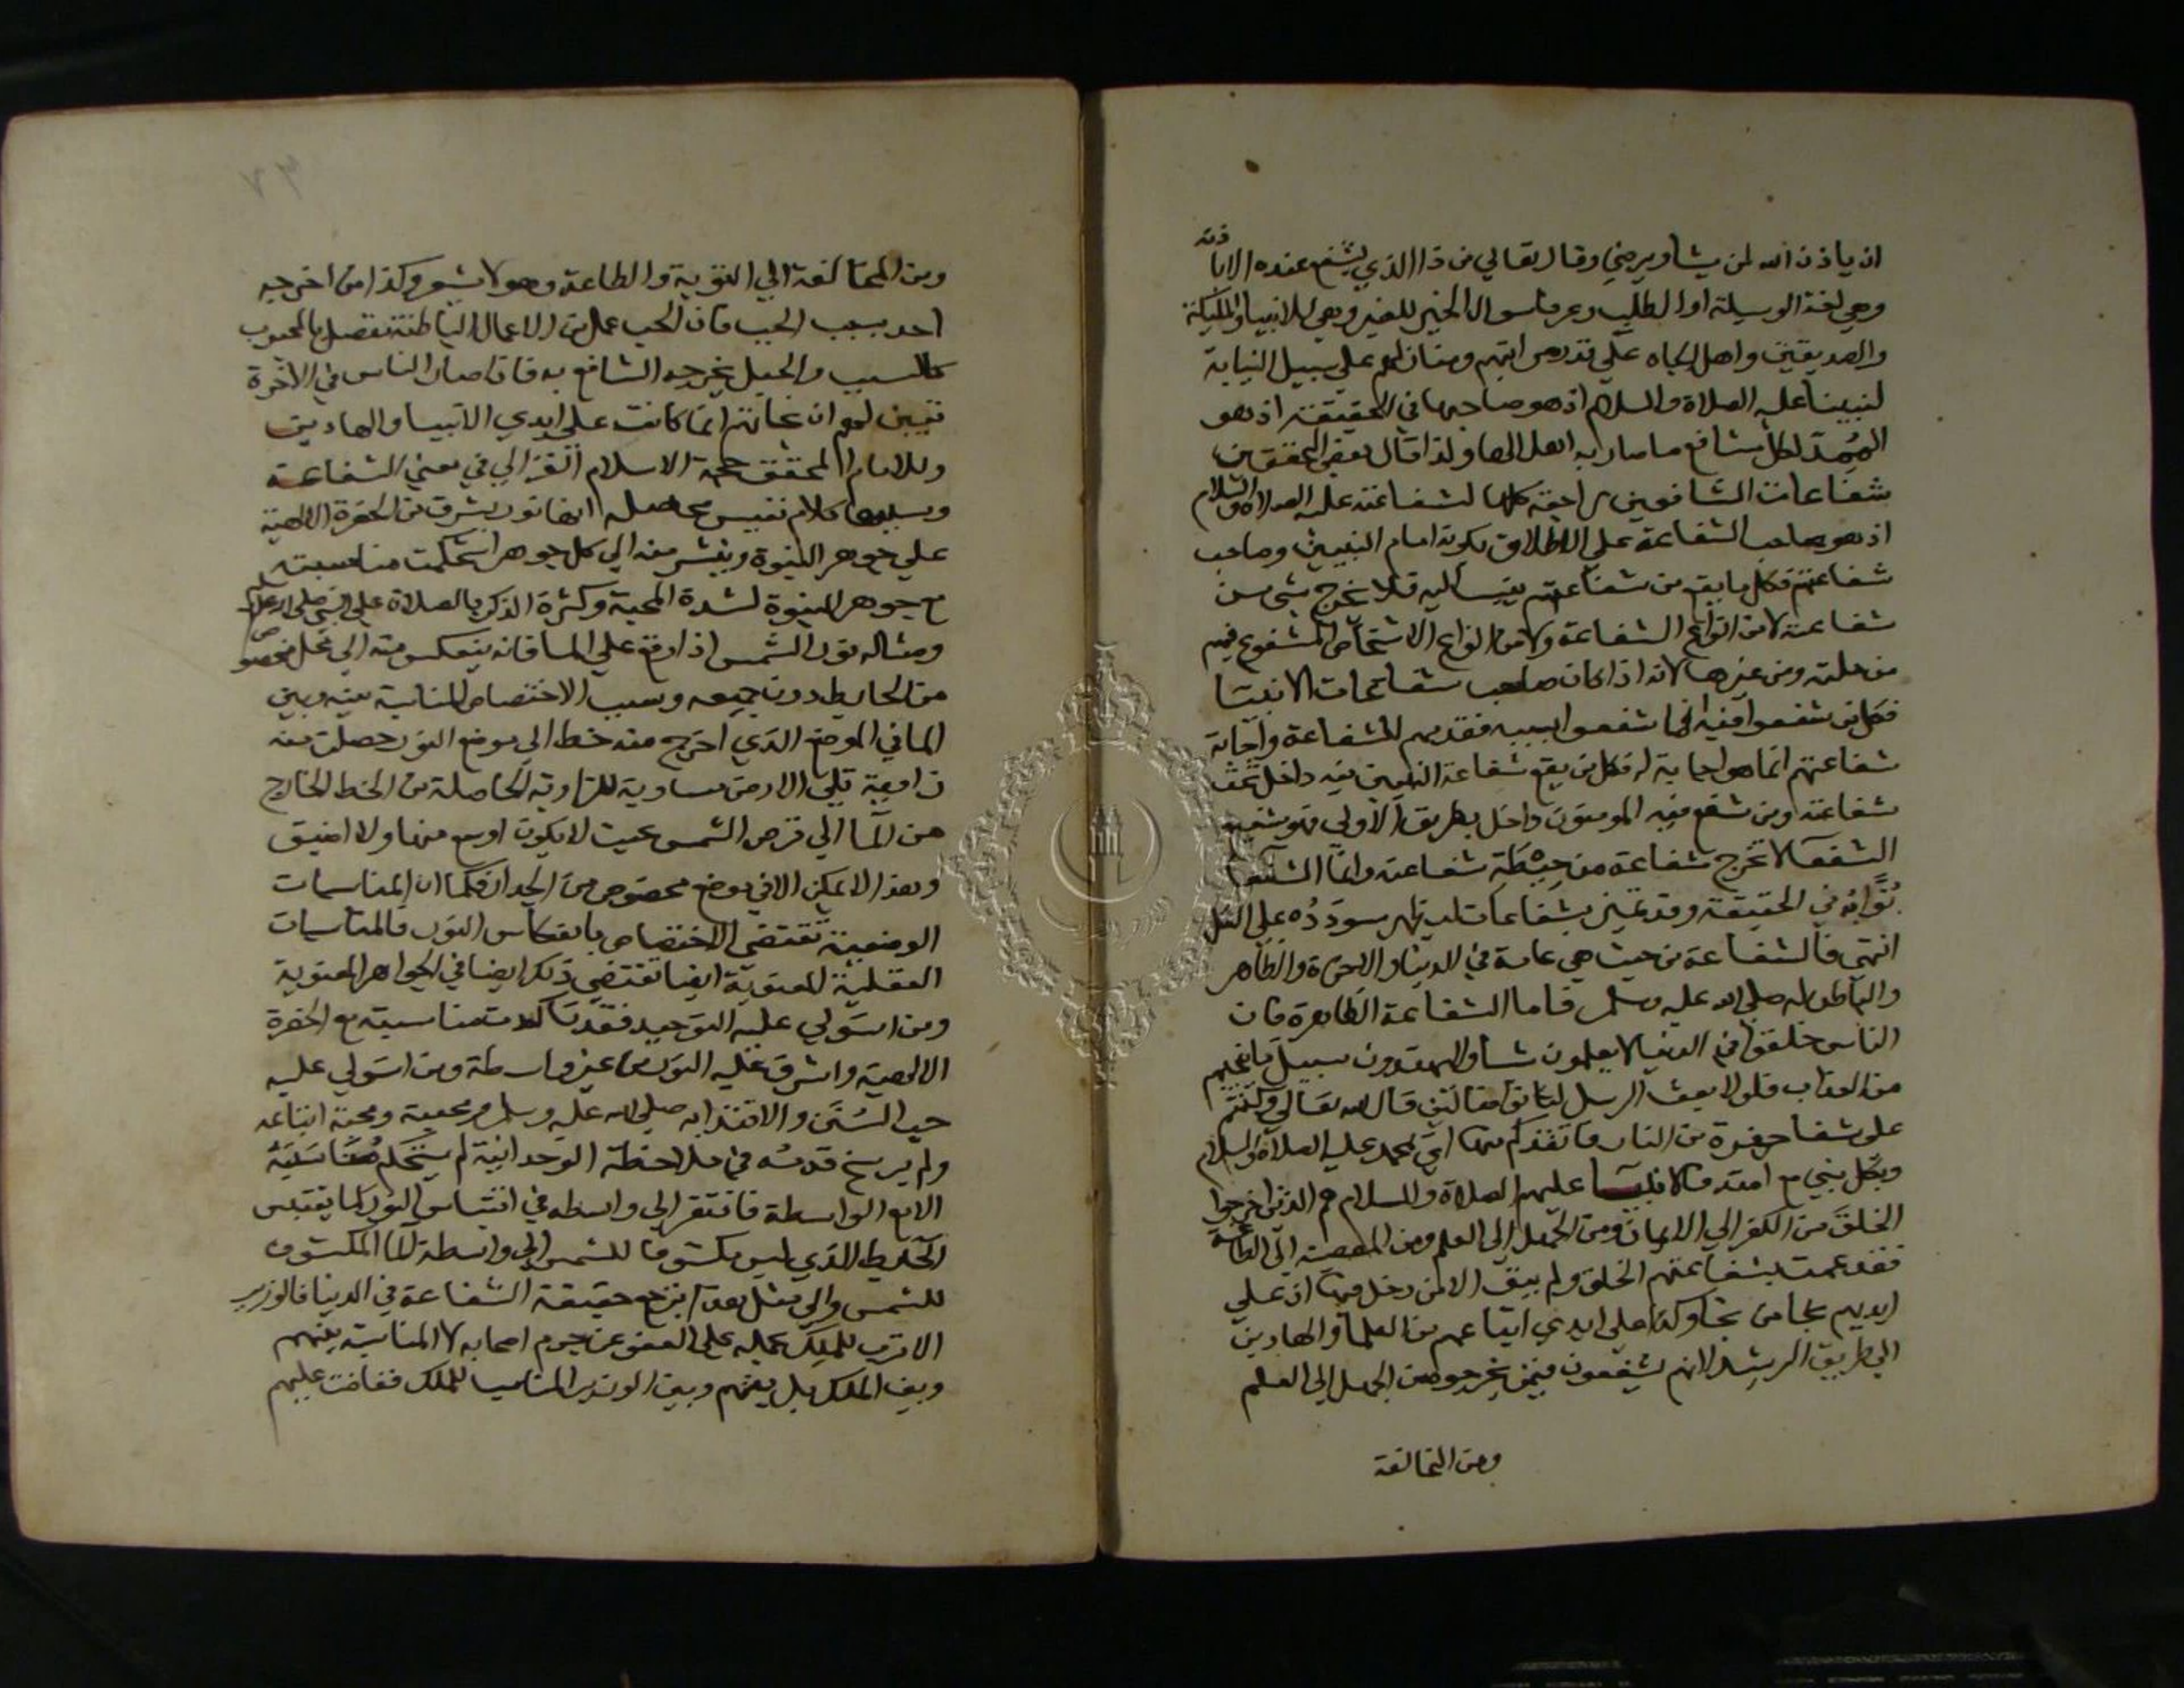 ان ياذن الله لمن يشا ويرضي وقال تعالي من ذا الذي يشفع عنده الا باذنه
وهي لغة الوسيلة او الطلب وعرفا سوال الخير للغير وهي للانبيا والمليكة
والصديقين واهل الجاه علي قدر مراتبهم ومنازلهم علي سبيل النيابة
لنبينا عليه الصلاة والسلام اذ هو صاحبها في الحقيقة اذ هو
الممِدّ لكل شافع ما صار به اهلا لها ولذا قال بعض المحققين
شفاعات الشافعين راجعة كلها لشفاعته عليه الصلاة والسلام
اذ هو صاحب الشفاعة علي الاطلاق بكونه امام النبيين وصاحب
شفاعتهم فكل ما يقع من شفاعتهم ينسب اليه فلا يخرج شي من
شفاعته لا من انواع الشفاعة ولا من انواع الاشخاص المشفوع فيهم
من ملته ومن غيرها لانه اذا كان صاحب شفاعات الانبيا
فكل من شفعوا فيه انما شفعوا بسببه فتقديمهم للشفاعة واجابة
شفاعتهم انما هو اجابة له فكل من يقع شفاعة النبيين فيه داخل تحت
شفاعته ومن شفع فيه المومنون داخل بطريق الاولي فهو شفيع
الشفعا لا تخرج شفاعة من حِيْطَةِ شفاعته وانما الشفعا
نُوّابُهُ في الحقيقة وقد تميز بشفاعات ليظهر سودَدُه علي الكل
انتهي فالشفاعة من حيث هي عامة في الدنيا والاخرة والظاهر
والباطن له صلي الله عليه وسلم فاما الشفاعة الظاهرة فان
الناس خلقوا في الدنيا لا يعلمون شيا ولا يهتدون سبيل ما ينجيهم
من العذاب فلولا بعث الرسل لماتوا ضالين قال الله تعالي وكنتم
علي شفا حفرة من النار فانقذكم منها اي بمحمد عليه الصلاة والسلام
وبكل نبي مع امته فالانبيا عليهم الصلاة والسلام هم الذين اخرجوا
الخلق من الكفر الي الايمان ومن الجهل الي العلم ومن المعصية الي الطاعة
فقد عمت شفاعتهم الخلق ولم يبق الا من دخل فيها اذ علي
ايديهم نجا من نجا وكذا علي ايدي اتباعهم من العلما والهادين
الي طريق الرشد لانهم يشفعون فيمن يخرجوه من الجهل الي العلم
ومن المخالفة
ومن المخالفة الي التوبة والطاعة وهو لا يشعر وكذا من اخرجه
احد بسبب الحب فان الحب عمل من الاعمال الباطنة تتصل بالمحبوب
كالسبب والحبل يخرجه الشافع به فاذا صار الناس في الاخرة
تبين لهم ان نجاتهم انما كانت علي ايدي الانبيا والهادين
وللامام المحقق حجة الاسلام الغزالي في معني الشفاعة
وسببها كلام نفيس محصله انها نور يشرق من الحضرة الالهية
علي جوهر النبوة وينتشر منه الي كل جوهر استحكمت مناسبته
مع جوهر النبوة لشدة المحبة وكثرة الذكر بالصلاة علي النبي صلي الله عليه وسلم
ومثاله نور الشمس اذا وقع علي الما فانه ينعكس منه الي محل مخصوص
من الحايط دون جميعه وسبب الاختصاص المناسبة بينه وبين
الما في الموضع الذي اخرج منه خط الي موضع النور حصلت منه
زاوية تلي الارض مساوية للزاوية الحاصلة من الخط الخارج
من الما الي قرص الشمس بحيث لا يكون اوسع منها ولا اضيق
وهذا لا يمكن الا في موضع مخصوص من الجدار فكما ان المناسبات
الوضعية تقتضي الاختصاص بانعكاس النور فالمناسبات
العقلية المعنوية ايضا تقتضي ذلك ايضا في الجواهر المعنوية
ومن استولي عليه التوحيد فقد تاكدت مناسبته مع الحضرة
الالهية واشرق عليه النور من غير واسطة ومن استولي عليه
حب السُنَن والاقتدا به صلي الله عليه وسلم ومحبته ومحبة اتباعه
ولم يرسخ قدمُه في ملاحظة الوحدانية لم يستحكم مُنَاسَبَتُهُ
الا مع الواسطة فافتقر الي واسطة في اقتباس النور كما يفتقر
الحايط الذي ليس مكشوفا للشمس الي واسطة الما المكشوف
للشمس والي مثل هذا يرجع حقيقة الشفاعة في الدنيا فالوزير
الاقرب للملك يحمله علي العفو عن جرم اصحابه لا المناسبة بينهم
وبين الملك بل بينهم وبين الوزير المناسب للملك ففاضت عليهم